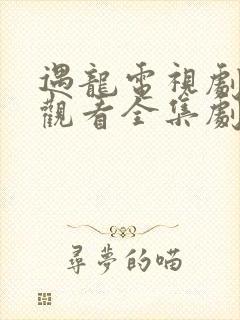 遇龍電視劇
觀看全集劇
尋夢的喵